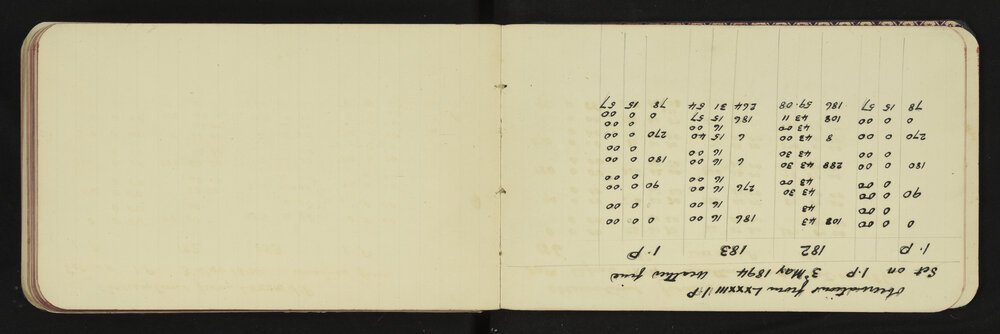 Observations from LXXXIII I.P
Set on I.P 3rd May 1894 Weather fine
I.P 182 183 I.P
0 0 00 108 43 186 16 00 0 0 00
0 00 43 16 00 0 00
90 0 00 43 30 276 16 00 90 0 00
0 00 43 00 16 00 0 00
180 0 00 288 43 30 6 16 00 180 0 00
0 00 43 30 16 00 0 00
270 0 00 8 43 00 6 15 40 270 0 00
0 00 43 00 16 00 0 00
0 0 00 108 43 11 186 15 57 0 0 00
78 15 57 186 59.08 264 31 54 78 15 57